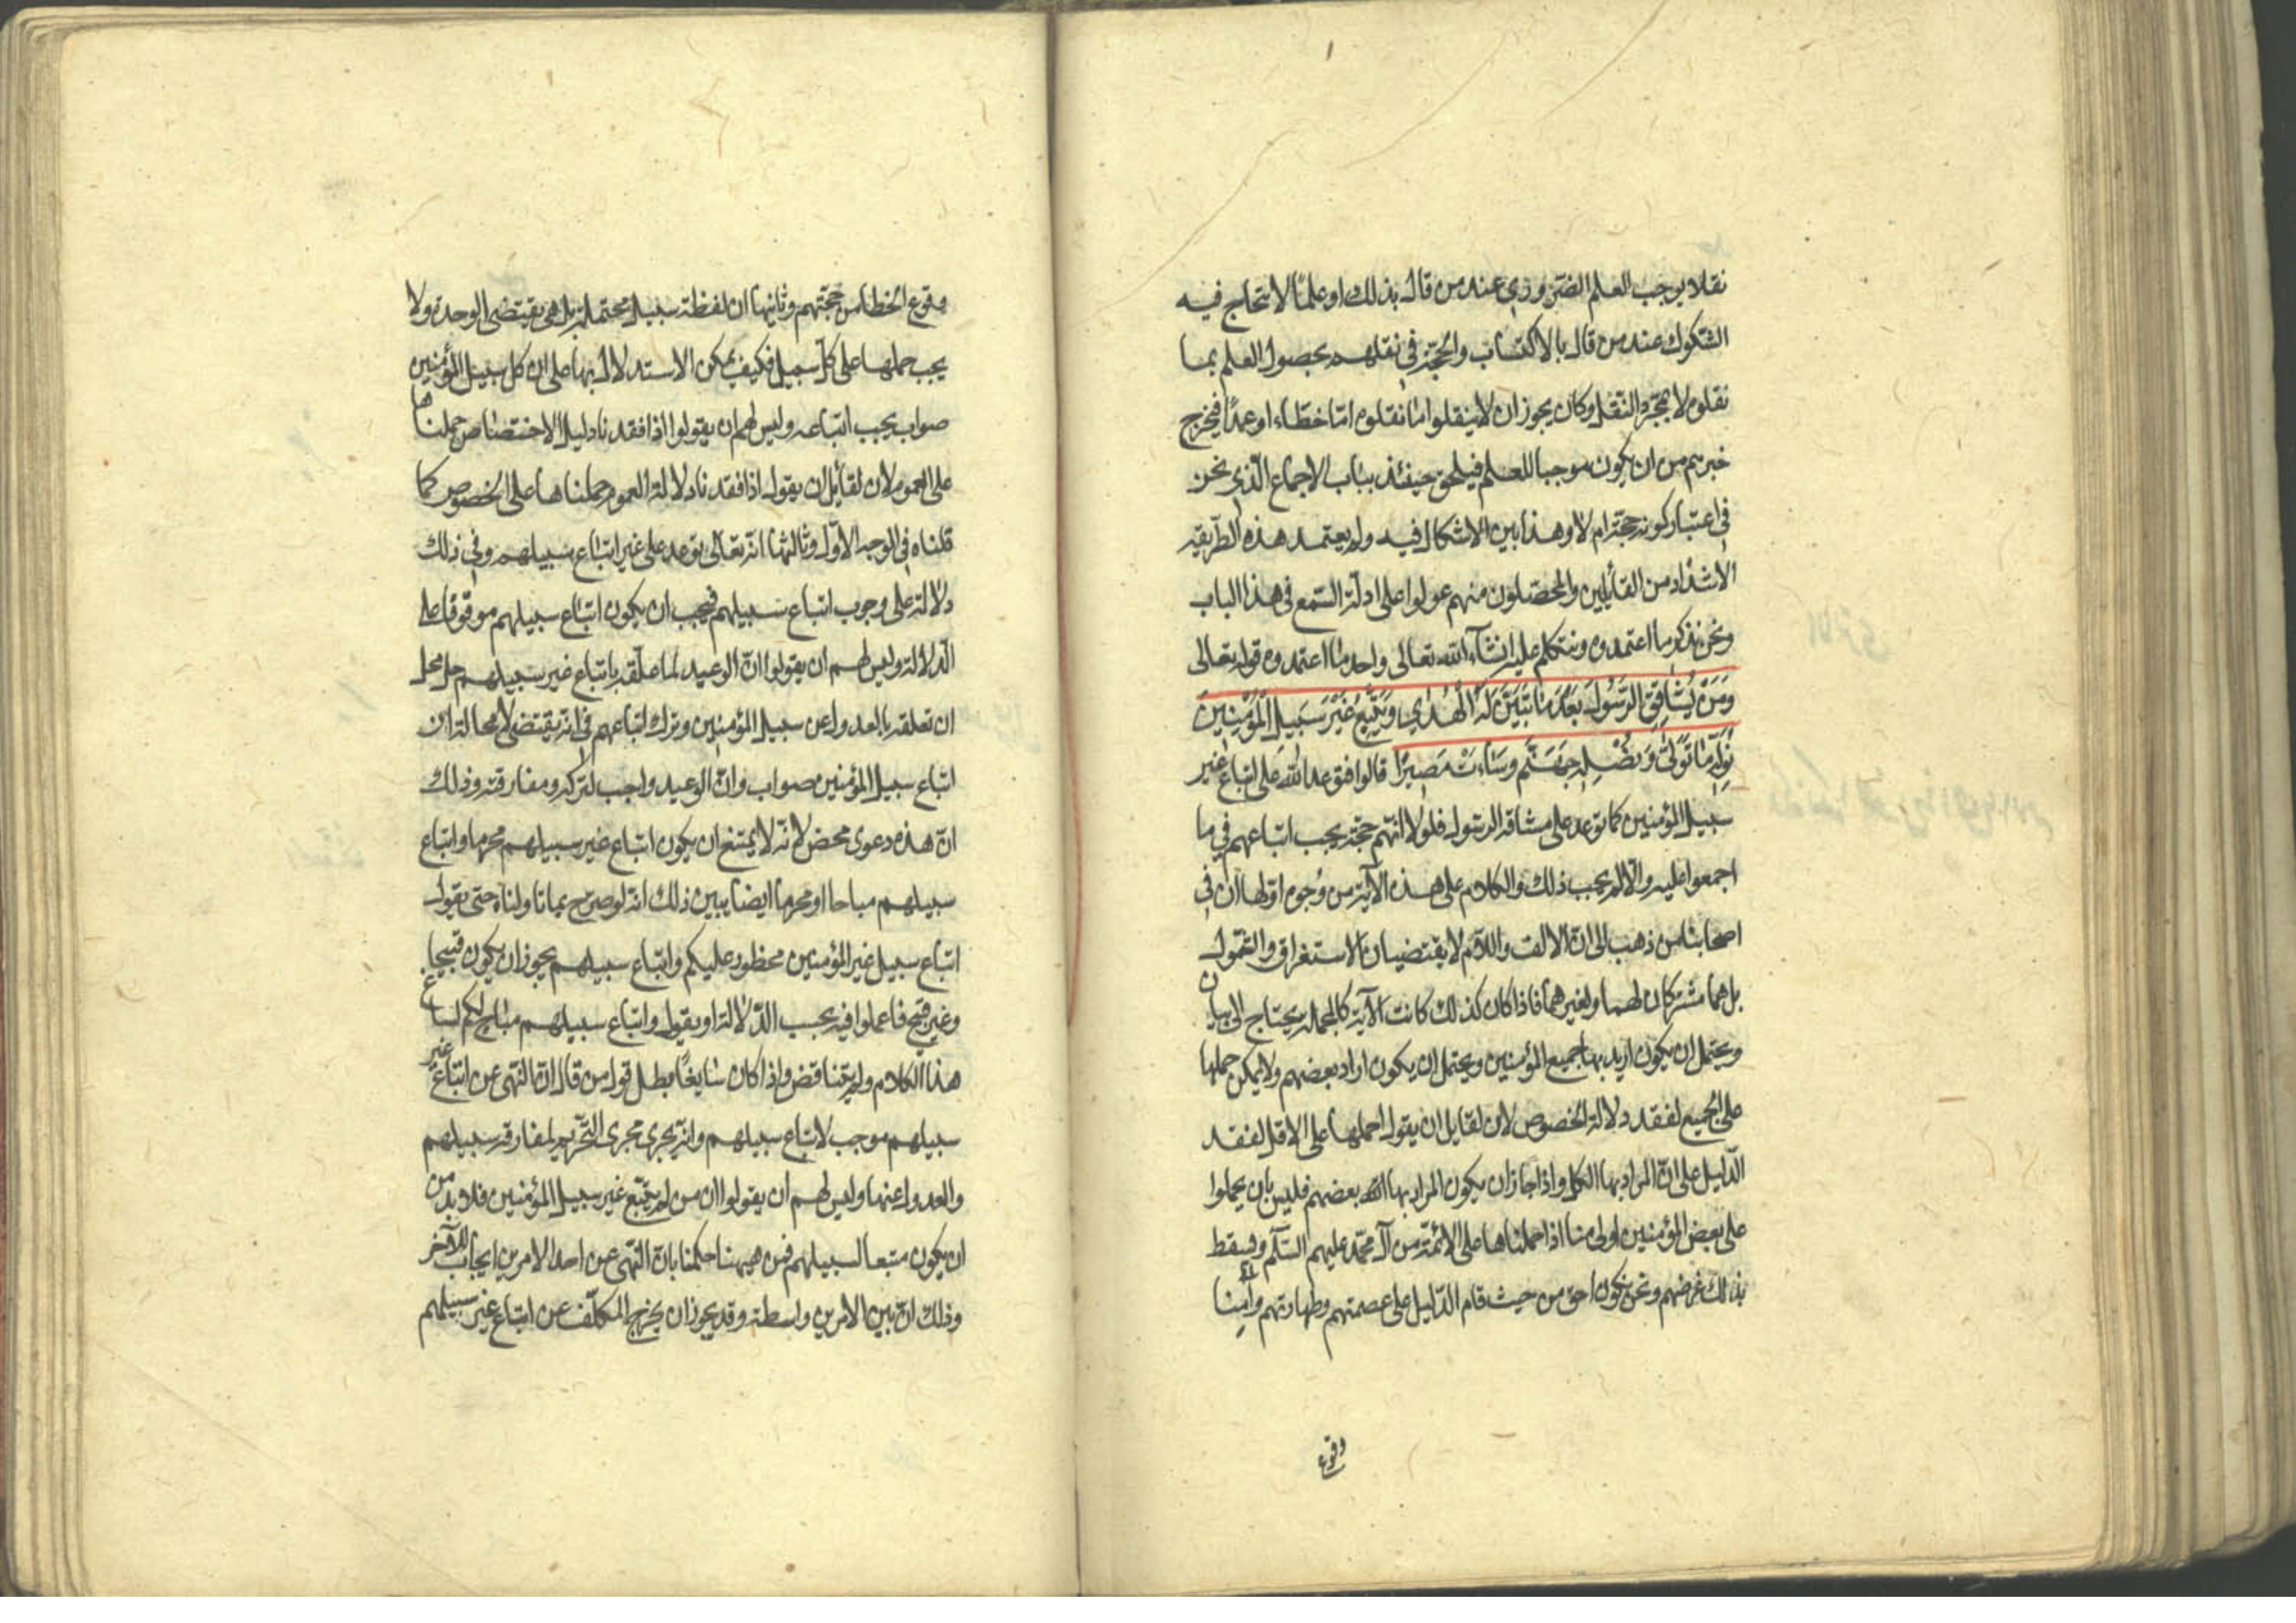 نقلا يوجب العلم الضروري عند من قال بذلك او علما لا تتخالج فيه
الشكوك عند من قال بالاكتساب والحجة في نقلهم بحصول العلم بما
نقلوه لا بمجرد النقل وكان يجوز ان لا ينقلوا ما نقلوه اما خطاء او عمدا فيخرج
خبرهم من ان يكون موجبا للعلم فيلحق حينئذ بباب الاجماع الذي نحن
في اعتبار كونه حجة ام لا وهذا بين الاشكال فيه ولم يعتمد هذه الطريقه
الا شذاذ من القائلين والمحصلون منهم عولوا على ادلة السمع في هذا الباب
ونحن نذكر ما اعتمدوه ونتكلم عليه انشآء الله تعالى واحد ما اعتمدوه قوله تعالى
وَمَنْ يُشَاقِقِ الرَّسُولَ بَعْدَ مَا تَبَيَّنَ لَهُ الْهُدَى وَيَتَّبِعْ غَيْرَ سَبِيلِ الْمُؤْمِنِينَ
نُوَلِّهِ مَا تَوَلَّى وَنُصْلِهِ جَهَنَّمَ وَسَاءَتْ مَصِيرًا قالوا فتوعد الله على اتباع غير
سبيل المؤمنين كما توعد على مشاقة الرسول فلولا انهم حجة يجب اتباعهم في ما
اجمعوا عليه والا لم يجب ذلك والكلام على هذه الآية من وجوه اولها ان في
اصحابنا من ذهب الى ان الالف واللام لا يقتضيان الاستغراق والشمول
بل هما مشتركان لهما ولغيرهما فاذا كان كذلك كانت الآية كالمجملة يحتاج الى بيان
ويحتمل ان يكون اريد بها جميع المؤمنين ويحتمل ان يكون اراد بعضهم ولا يمكن حملها
على الجميع لفقد دلالة الخصوص لان لقايل ان يقول احملها على الاقل لفقد
الدليل على ان المراد بها الكل واذا جاز ان يكون المراد بها بعضهم فليس بان يحملوا
على بعض المؤمنين اولى منا اذا حملناها على الائمة من آل محمد عليهم السلم وسقط
بذلك غرضهم ونحن نكون احق من حيث قام الدليل على عصمتهم وطهارتهم وآمنا
وقوع
وقوع الخطا من حجتهم وثانيها ان لفظة سبيل محتملة بل هي يقتضى الوحدة ولا
يجب حملها على كل سبيل فكيف يمكن الاستدلال بها على ان كل سبيل المؤمنين
صواب يجب اتباعه وليس لهم ان يقولوا اذا فقدنا دليل الاختصاص حملناها
على العموم لان لقائل ان يقول اذا فقدنا دلالة العموم حملناها على الخصوص كما
قلناه في الوجه الاول وثالثها انه تعالى توعد على غير اتباع سبيلهم وفي ذلك
دلالة على وجوب اتباع سبيلهم فيجب ان يكون اتباع سبيلهم موقوفا على
الدلالة وليس لهم ان يقولوا ان الوعيد لما علقه باتباع غير سبيلهم حل محل
ان تعلقه بالعدول عن سبيل المؤمنين وترك اتباعهم في انه يقتضى لا محالة ان
اتباع سبيل المؤمنين صواب وان الوعيد واجب لتركه ومفارقته وذلك
ان هذه دعوى محض لانه لا يمتنع ان يكون اتباع غير سبيلهم محرما واتباع
سبيلهم مباحا او محرما ايضا يبين ذلك انه لو صرح بما تاولناه حتى يقول
اتباع سبيل غير المؤمنين محظور عليكم واتباع سبيلهم يجوز ان يكون قبيحا
وغير قبيح فاعملوا فيه بحسب الدلالة او يقول واتباع سبيلهم مباح لكم لساغ
هذا الكلام ولم يتناقض واذا كان سايغا بطل قول من قال ان النهى عن اتباع غير
سبيلهم موجب لاتباع سبيلهم وانه يجرى مجرى التحريم لمفارقة سبيلهم
والعدول عنها وليس لهم ان يقولوا ان من لم يتبع غير سبيل المؤمنين فلابد من
ان يكون متبعا لسبيلهم فمن ههنا حكمنا بان النهى عن احد الامرين ايجاب للآخر
وذلك ان بين الامرين واسطة وقد يجوز ان يخرج المكلف عن اتباع غير سبيلهم